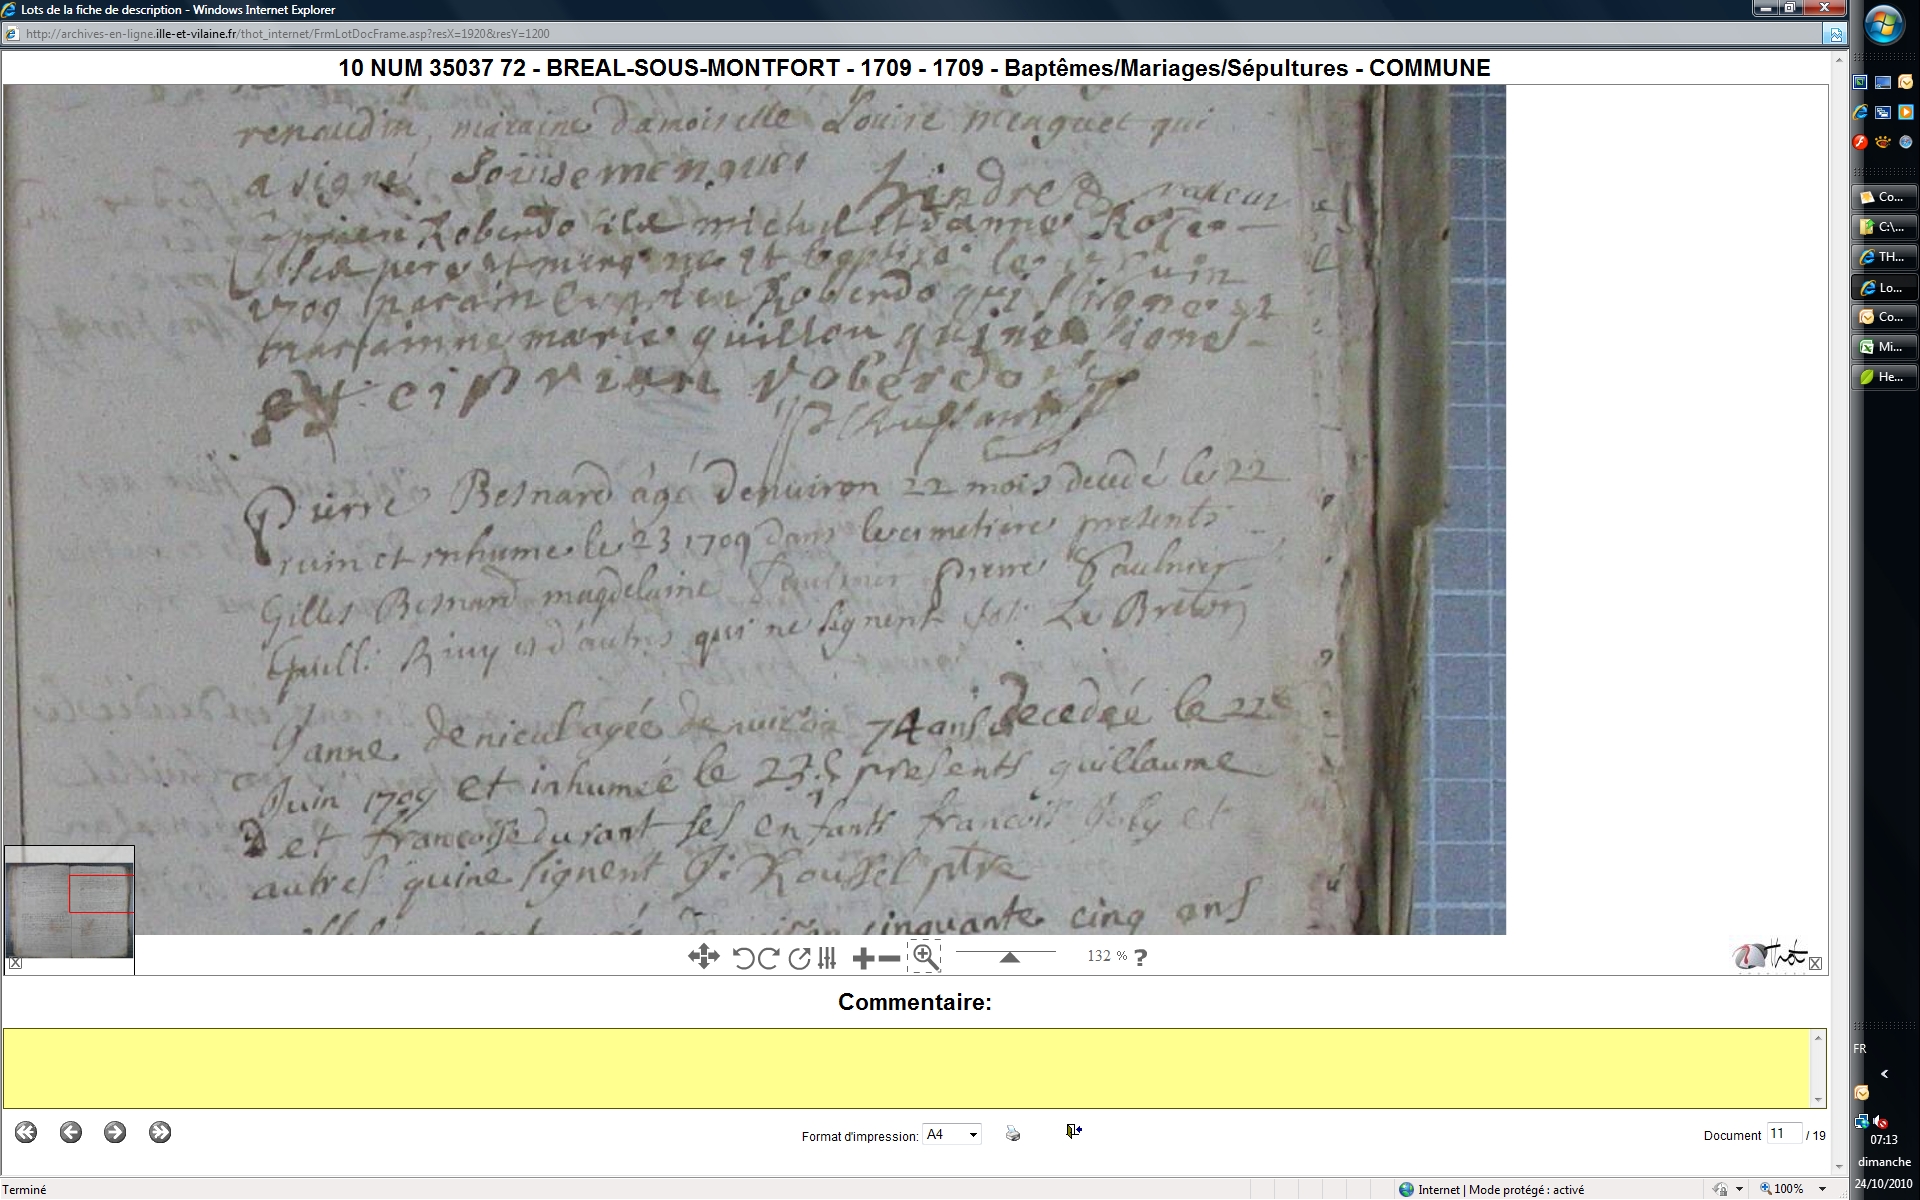 Lots de la fiche de description - Windows Internet Explorer
http://archives-en-ligne.ille-et-vilaine.fr/thot_internet/FrmLotDocFrame.asp?resX=1920&resY=1200
10 NUM 35037 72 - BREAL-SOUS-MONTFORT - 1709 - 1709 - Baptêmes/Mariages/Sépultures - COMMUNE
renaudin, maraine damoiselle Louise menguet qui
a signé Loüise menguet
Roberdo michel et
pere et mere né et baptisé le juin
1709 Roberdo qui signe et
marainne marie guillou qui ne signe
ciprian roberdo
Pierre Besnard âgé denuiron 22 mois decedé le 22
juin et inhumé le 23 1709 dans le cimetiere presents
Gilles Besnard magdelaine Saulnier pierre Saulnier
Guill: et d'autres qui ne signent Le Breton
Janne agée denuiron 74 ans decedée le 22e
Juin 1709 et inhumée le 23 presents guillaume
et francoisse durant ses enfants francois et
autres qui ne signent J: Roussel ptre
cinquante cinq ans
132 % ?
Thot
Commentaire:
Format d'impression: A4
Document 11 / 19
Terminé
Internet | Mode protégé : activé
100%
Co...
C:\...
TH...
Lo...
Co...
Mi...
He...
FR
07:13
dimanche
24/10/2010